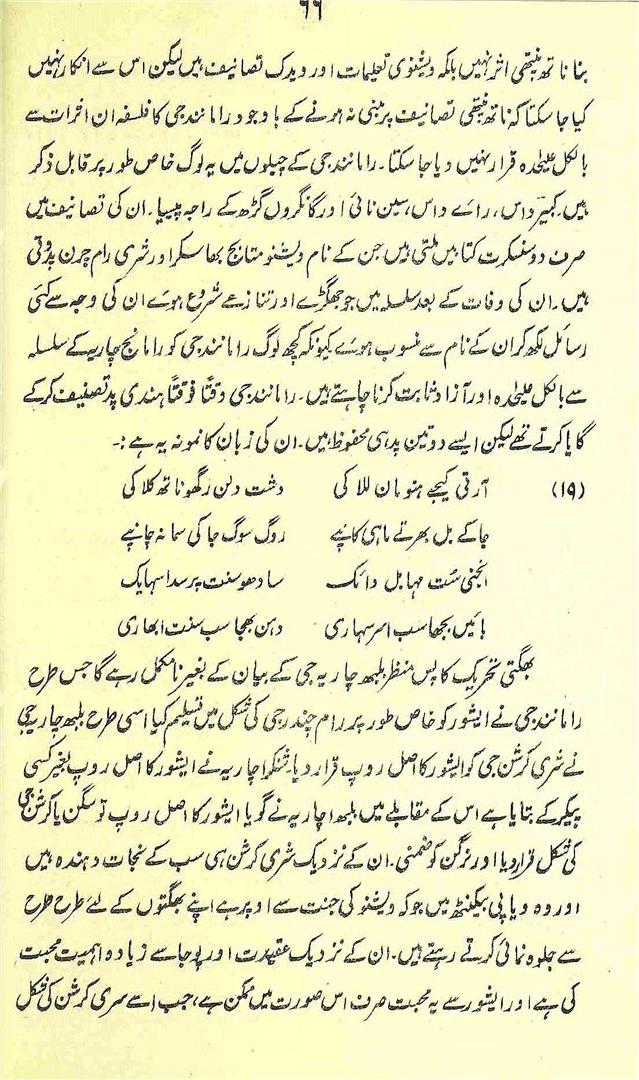 ۶۶
بنا ناتھ پنتھی اثر نہیں بلکہ ویشنوی تعلیمات اور ویدک تصانیف ہیں لیکن اس سے انکار نہیں
کیا جا سکتا کہ ناتھ پنتھی تصانیف پر مبنی نہ ہونے کے باوجود رامانندجی کا فلسفہ ان اثرات سے
بالکل علیٰحدہ قرار نہیں دیا جا سکتا۔ رامانندجی کے چیلوں میں یہ لوگ خاص طور پر قابل ذکر
ہیں۔ کبیر داس، راے داس، سین نائی اور گانگروں گڑھ کے راجہ پیپا۔ ان کی تصانیف میں
صرف دو سنسکرت کتابیں ملتی ہیں جن کے نام ویشنو متابج بھاسکر اور شری رام چرن پدوتی
ہیں۔ ان کی وفات کے بعد سلسلہ میں جو جھگڑے اور تنازعے شروع ہوے ان کی وجہ سے کئی
رسائل لکھ کر ان کے نام سے منسوب ہوے کیونکہ کچھ لوگ رامانندجی کو رامانج چاریہ کے سلسلہ
سے بالکل علیٰحدہ اور آزاد ثابت کرنا چاہتے ہیں۔ رامانندجی وقتاً فوقتاً ہندی پد تصنیف کر کے
گایا کرتے تھے لیکن ایسے دو تین پد ہی محفوظ ہیں۔ ان کی زبان کا نمونہ یہ ہے :۔
(۱۹) آرتی کیجے ہنومان للا کی دشت دلن رگھوناتھ کلا کی
جاکے بل بھرتے ماہی کانپے روگ سوگ جا کی سما نہ چانپے
انجنی سُت مہابل دائک سادھو سنت پر سدا سہایک
بائیں بھجا سب اسر سہاری دہن بھجا سب سنت ابھاری
بھگتی تحریک کا پس منظر بلبھ چاریہ جی کے بیان کے بغیر نامکمل رہے گا جس طرح
رامانندجی نے ایشور کو خاص طور پر رام چندرجی کی شکل میں تسلیم کیا اسی طرح بلبھ چاریہ جی
نے شری کرشن جی کو ایشور کا اصل روپ قرار دیا۔ شنکراچاریہ نے ایشور کا اصل روپ بغیر کسی
پیکر کے بتایا ہے اس کے مقابلے میں بلبھاچاریہ نے گویا ایشور کا اصل روپ تو سگن یا کرشن جی
کی شکل قرار دیا اور نرگن کو ضمنی۔ ان کے نزدیک شری کرشن ہی سب کے نجات دہندہ ہیں
اور وہ ویاپی بیکنٹھ میں جو کہ ویشنو کی جنت سے اوپر ہے اپنے بھگتوں کے لئے طرح طرح
سے جلوہ نمائی کرتے رہتے ہیں۔ ان کے نزدیک عقیدت اور پوجا سے زیادہ اہمیت محبت
کی ہے اور ایشور سے یہ محبت صرف اس صورت میں ممکن ہے، جب اسے سری کرشن کی شکل